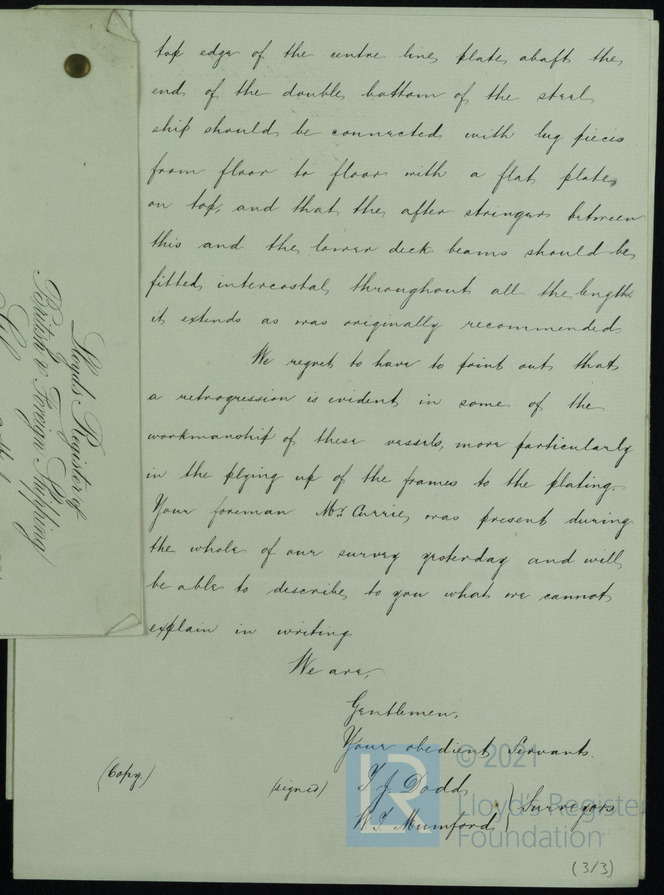 top edge of the centre line plate abaft the
end of the double bottom of the steel
ship should be connected with lug pieces
from floor to floor with a flat plate
on top, and that the after stringers between
this and the lower deck beams should be
fitted intercostal throughout all the length
it extends as was originally recommended
We regret to have to point out that
a retrogression is evident in some of the
workmanship of these vessels, more particularly
in the plying up of the frames to the plating.
Your foreman Mr. Currie, was present during
the whole of our survey yesterday and will
be able to describe to you what we cannot
explain in writing
We are,
Gentlemen,
Your obedient Servants.
(Copy.) (signed) T J Dodd
W. T. Mumford } Surveyors
(3/3)
Lloyds Register of
British & Foreign Shipping
© 2021
LR
Lloyd's Register
Foundation